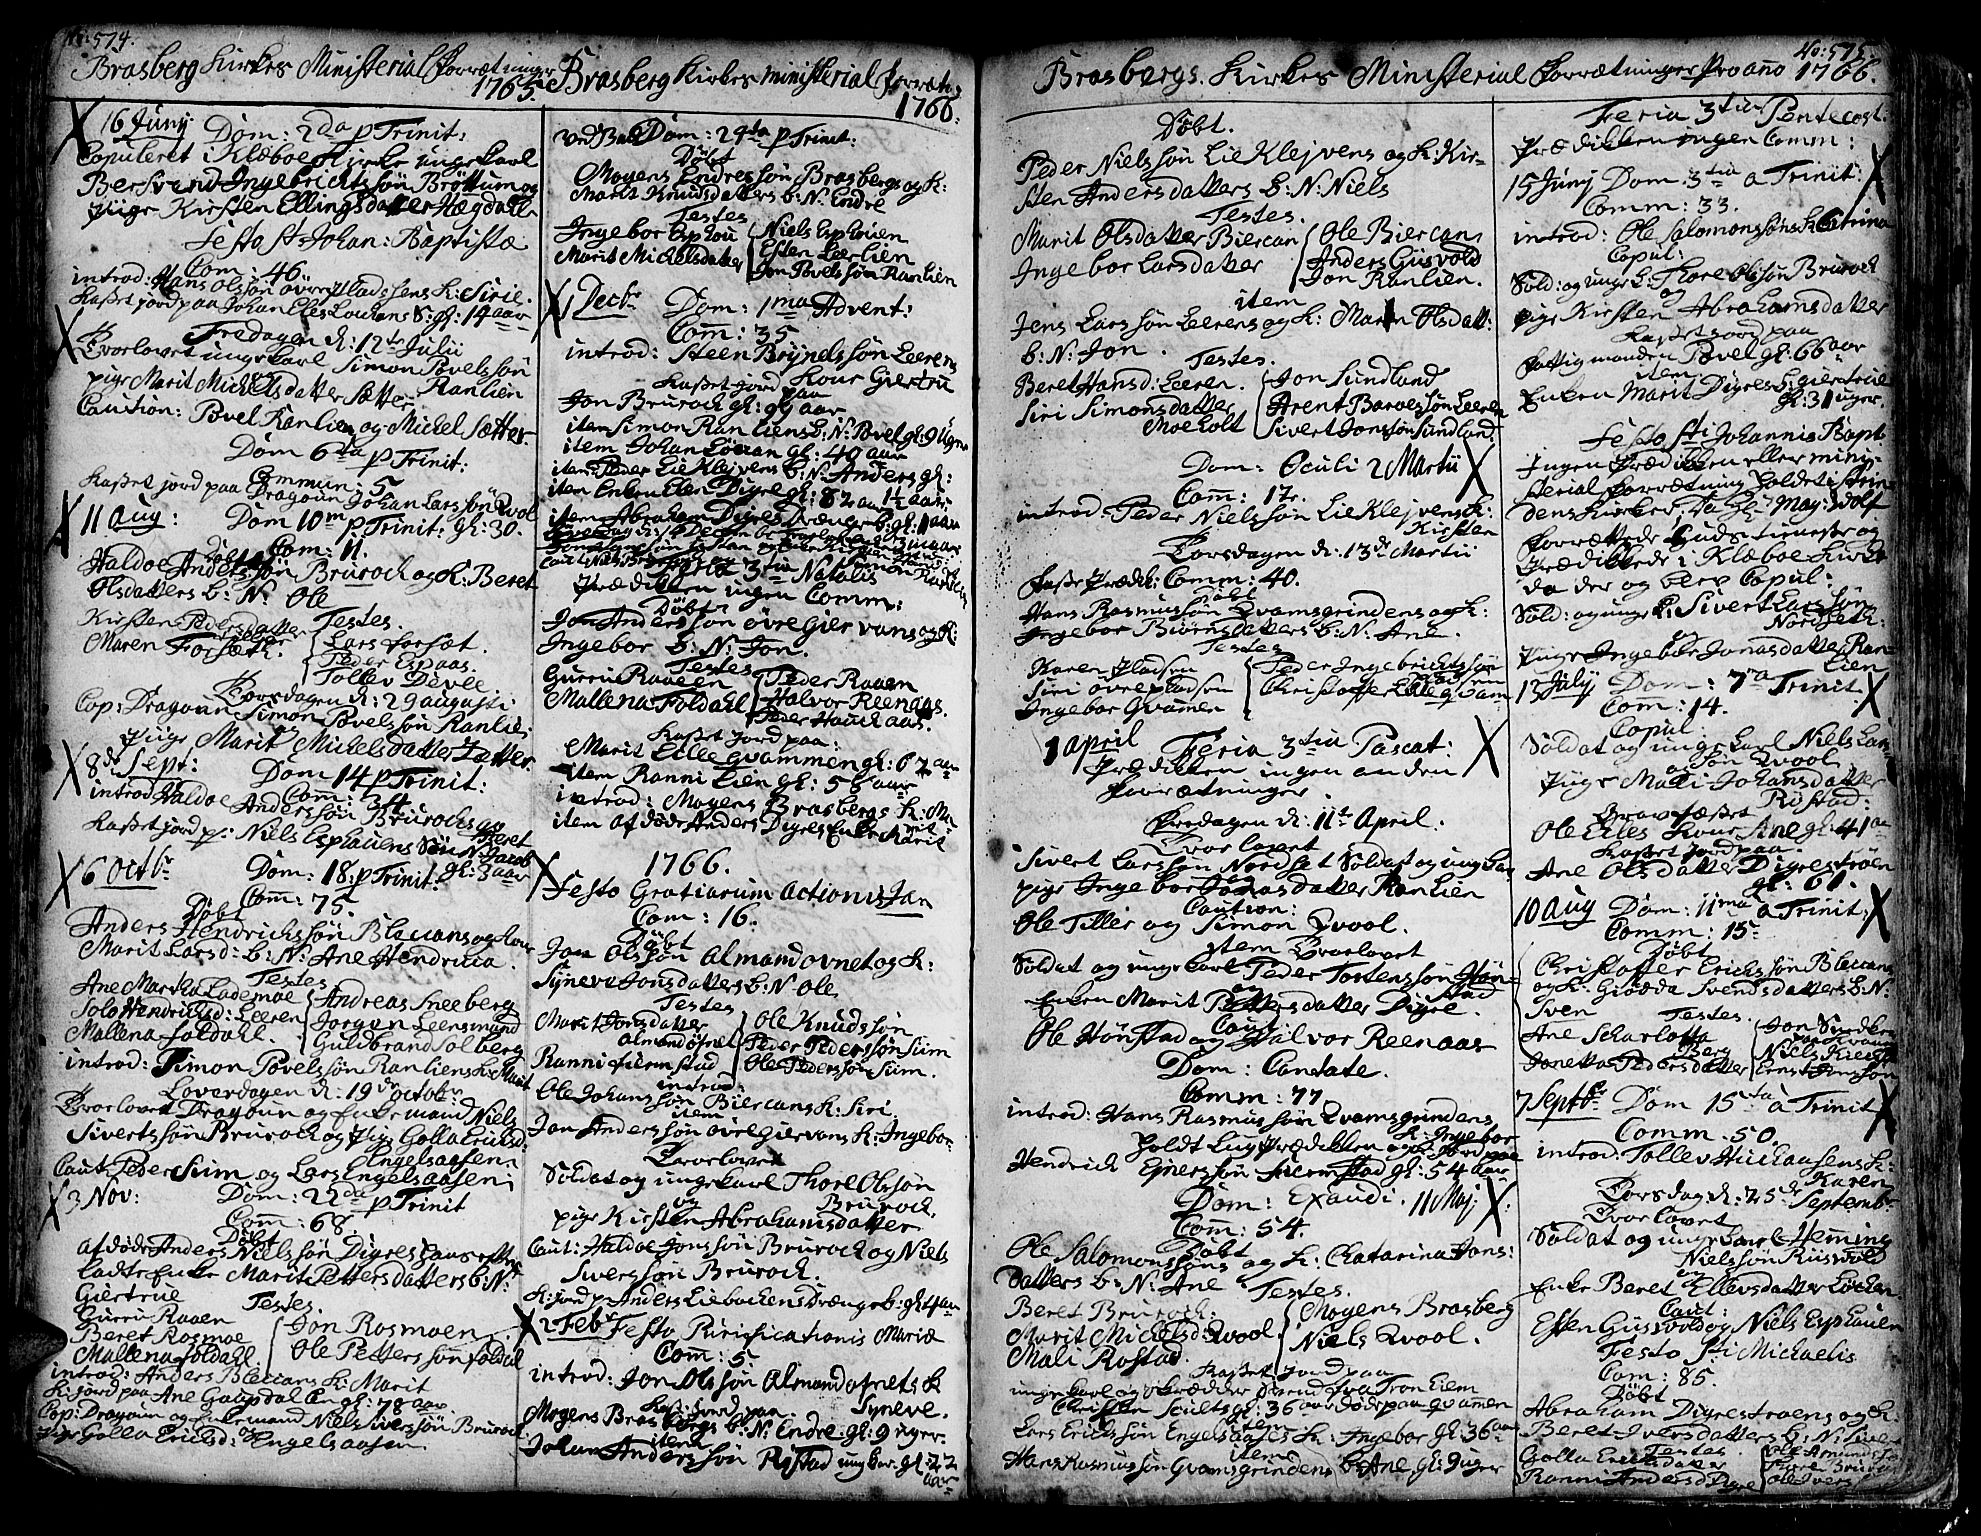 No: 574.
Brasberg Kirkes Ministerial Forrætninger
1765.
16 Junij Dom: 2da p Trinit:
Copuleret i Klæboe Kirke unge karl
Bersvend Ingebrichtsøn Brøttum og
pige Kirsten Ellingsdatter Hægdahl
Festo St: Johan: Baptistæ
Com: 46
introd: Hans Olssøn øvre pladsens K: Sirie.
Kastet jord paa Johan Elles Louens S: gl: 14 aar
Fredagen d: 12te Julii
Trorlovet unge karl Simon Povelssøn
Ranlien
pige Marit Michelsdatter Sætter
Caution: Povel Ranlien og Michel Sætter.
Dom 6ta p Trinit:
Commun: 5
Kastet jord paa Dragoun Johan Larssøn Qvol
gl: 30.
11 Aug: Dom 10m p Trinit:
Com: 11.
Døbt
Haldoe Anderssøn Brurock og K: Beret
Olsdatters b: N: Ole
Testes.
Kirsten Pedersdatter
Maren Forsæth.
Lars Forsæt
Peder Espaas.
Tollev Devle
Torsdagen d: 29 augusti
Cop: Dragoun Simon Povelssøn Ranlien
Pige Marit Michelsdatter Sætter.
8de Sept: Dom 14 p Trinit:
Com: 34
introd: Haldoe Anderssøn Brurocks Beret
Kastet jord p: Niels Esphauens Søn N: Jacob
gl: 3 aar
6 Octbr Dom: 18 p Trinit:
Com: 75.
Døbt
Anders Hendrichssøn Bleccans og Kone
Marit Larsd: b: N: Ane Hendrica.
Testes
Ane Martha Lademoe
Solo Hendricksd: Leeren
Mallena Foldahl.
Andreas Sneeberg
Jorgen Leensmand
Guldbrand Solberg
introd: Simon Povelssøn Ranliens K: Marit
Løverdagen d: 19de octobr:
Trorlovet Dragoun og Enkemand Niels
Sivertssøn Brurock og Pige Golla Ericksd:
Engelsaasen.
Caut: Peder Siim og Lars Engelsaasen;
3 Nov: Dom: 22da p Trinit
Com: 68.
Døbt
afdøde Anders Nielssøn Digres
ladte Enke Marit Pettersdatters b: N:
Giertrue
Testes.
Gurri Raaen
Beret Rosmoe
Mallena Foldahl
Jon Rosmoen
Ole Petterssøn Foldal
introd: Anders Bleccans K: Marit
K: jord paa Ane Gaupdal gl: 78 aar.
Cop: Dragoun og Enkemand Niels Siverssøn Brurock
pige Golla Ericksd: Engelsaasen.
Brasberg Kirkes ministerial forrætn:
1766.
Dom: 24ta p Trinit:
Døbt
Mogens Endressøn Brasbergs og K:
Marit Knudsdatters b: N: Endre
Testes
Ingebor Esphou
Marit Michelsdatter
Niels Esphouen
Esten Leerlien
Jon Povelssøn Ranlien
1 Decbr Dom: 1ma Advent:
Com: 35
introd: Steen Brynelssøn Leerens
Kone Giertru
Kastet jord paa
Jon Brurock gl: 99 aar
item Simon Ranliens b: N: Povel gl: 9 Uger
item Johan Louan gl: 40 aar
item Peder Lie Klejvens b: N: Anders gl:
1½ aar
item Enken Ellen Digre gl: 82 aar
item Abraham Digres Drænge b: gl: 1 aar
Feria 3tia Natalis
Prædiken ingen Comm:
Døbt
Jon Anderssøn øvre Giervans og K:
Ingebor b: N: Jon.
Testes
Gurrie Raaeen
Mallena Foldahl
Peder Raaen
Halvor Reenaas.
Peder Hauckaas.
Kastet jord paa:
Marit Eille gvammen gl: 62 aar
item Ranni Lien gl: 56 aar
introd: Mogens Brasbergs K: Ma
rit
item afdøde Anders Digres Enke Marit
1766.
Festo Gratiarum actionis Jan
Com: 16.
Døbt
Jon Olssøn Almandovnet og K:
Syneve Jonsdatters b: N: Ole
Testes
Marit Jonsdatter
Almandofnet
Ranni Fiermstad
Ole Knudssøn
Peder Pederssøn Siim
Ole Pederssøn Siim.
introd:
Ole Johanssøn Biercans K: Siri.
item
Jon Anderssøn øvre Giervans K: Ingebor
Trorlovet
Soldat og unge karl Thore Olssøn
Brurock.
og
pige Kirsten Abrahamsdatter
Caut: Haldoe Jonssøn Brurock og Niels
Siverssøn Brurock.
K: jord p: Anders Liebackens Drænge b: gl: 4 aar
2 Febr Festo Purificationis Mariæ
Com: 5.
introd: Jon Olssøn Almandofnets K
Syneve.
Kast jord paa
Mogens Brasbergs b: N: Endre gl: 9 uger.
item
Johan Anderssøn Røstad ung kar. gl: 22
aar
No: 575.
Brasbergs. Kirkes Ministerial Forrætninger Pro año 1766.
Døbt.
Peder Nielssøn Lie Klejvens og K: Kir-
sten Andersdatters b: N: Niels
Testes.
Marit Olsdatter Biercan
Ingebor Larsdatter
Ole Biercan
Anders Gusvold
Jon Ranlien.
item
Jens Larssøn Leerens og K: Maren Olsdatt:
b: N: Jon.
Testes.
Beret Hansd: Leeren.
Siri Simonsdatter
Moeholt
Jon Sundland
Arent Baroessøn Leeren
Sivert Jonssøn Sundland.
Dom: Oculi 2 Martii
Com: 17.
introd: Peder Nielssøn Lie Klejvens K:
Kirsten
Torsdagen d: 13de Martii
Faste Prædik: Comm: 40.
Døbt
Hans Rasmussøn Qvamsgrindens og K:
Ingebor Biørnsdatters b: N: Ane.
Testes
Karen Pladsen
Siri øvre pladsen
Ingebor Gvamen
Peder Ingebrichtssøn
pladsen
Christoffer Eille gvam
1 april Feria 3tia Pascat:
Prædicken ingen anden
forrætninger.
Fredagen d: 11te April.
Trorlovet
Sivert Larssøn Nordset Soldat og ung kar
pige Ingebor Jonasdatter Ranlien
Caution:
Ole Tiller og Simon Qvool.
item Trorlovet
Soldat og unge karl Peder Tostenssøn Høn-
stad
og
Enken Marit Pettersdatter Digre.
Caut:
Ole Hønstad og Halvor Reenaas
Dom: Cantate.
Comm: 77
introd: Hans Rasmussøn Qvamsgrindens
K: Ingebor
holdt Liig Prædicken og K: Jord paa
Hendrick Ejnerssøn Fiermstad gl: 54 aar
Dom: Exaudi. 11 Maj
Com: 54.
Døbt
Ole Salomonssøns og K: Chatarina Jons:
datters b: N: Ane
Testes.
Beret Brurock:
Marit Michelsd: Qvool.
Mali Røstad.
Mogens Brasberg
Niels Qvool.
Kastet Jord paa
unge karl og skrædder Svend fra Tron Eiem
Christen Scultsgl: 36 aar døde paa gvamen
item
Lars Erickssøn Engelsaases K: Ingebor gl: 36 aar
item
Hans Rasmussøn Gvamsgrindens b: Ane gl: 9 uger
Feria 3tia Pentecost.
Prædikken ingen Comm:
15 Junij Dom 3tia a Trinit:
Comm: 33.
introd: Ole Salomonssøns K Catrina
Copul:
Sold: og unge k: Thore Olssøn Brurock
og
pige Kirsten Abrahamsdatter
Kastet jord paa
fattig manden Povel gl: 66 aar
item
Enken Marit Digres b: Giertrue
gl: 31 uger.
Festo Sti Johannis Bapt
Ingen Prædikken eller mini-
sterial forrætning holdet i
dens Kirke, da Hr May: Wolf
forrættede Guds tieneste og
Prædikkede i Klæboe Kirke
da der og blev Copul:
Sold: og unge k: Sivert Larssøn
Nordseth:
og
Pige Ingebor Jonasdatter Ran-
lien
13 July Dom: 7a Trinit.
Com: 14.
Copul
Soldat og unge karl Niels Lar-
søn Qvool
og
Pige Mali Johansdatter
Røstad:
Gravfæstet
Ole Eilles Kone Ane gl: 41 aar
Kastet Jord paa
Ane Olsdatter Digrestrøen
gl: 61.
10 aug Dom: 11ma a Trinit;
Comm: 15
Døbt
Christoffer Erickssøn Bleccans
og K: Giødda Svendsdatters b: N:
Sven
Testes
Ane Scharlotta
Berg
Jonetta Pedersdatter
Ernst Jonssøn
7 Septbr Dom 15ta a Trinit
Comm. 50.
introd: Tollev Huckaasens K:
Karen
Torsdag d: 25de Septembr
Trorlovet
Soldat og unge karl Heming
Nielssøn Kusvold
og
Enke Beret Ellevsdatter Løcken
Caut:
Esten Gusvold og Niels Esphauen
Festo Sti Michaelis
Com: 85.
Døbt
Abraham Digrestroens og K:
Beret Iversdatters b: N: Siver
Testes.
Golla Ericksdatter
Ranni Andersd Digre
Ole Amundssøn
Thore Brurock
Ole Ivers